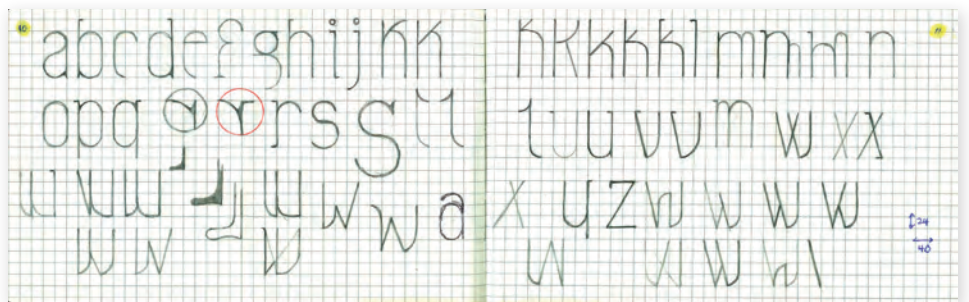 10
abcdefghijkk
opq r r r s S t t
u w w w w w a
w w w
11
k k k k k l m m m n
t u u v v m w x x
x y z w w w w
24
40
w w w